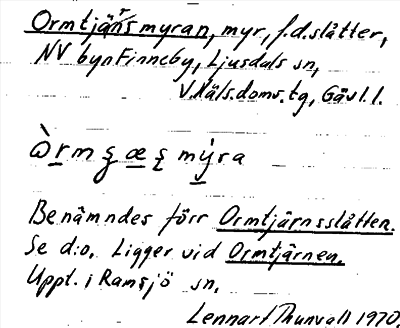 Ormtjärnsmyran, myr, f.d.slåtter,
NV byn Finneby, Ljusdals sn,
V.Häls.doms.tg, Gävl.l.
Benämndes förr Ormtjärnsslåtten.
Se d:o. Ligger vid Ormtjärnen.
Uppt. i Ramsjö sn.
Lennart Thunvall 1970.